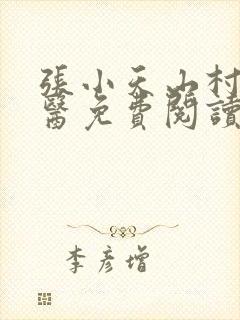 張小天山村
醫免費閱讀
李彥增